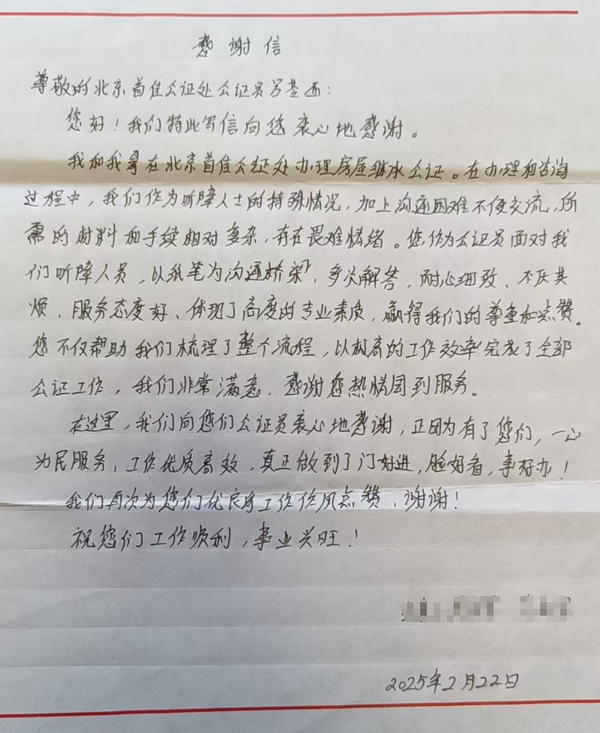 感谢信
尊敬的北京首佳公证处公证员
您好！我们特此写信向您衷心地感谢。
我和我哥在北京首佳公证处办理房屋继承公证。在办理和咨询
过程中，我们作为听障人士的特殊情况，加上沟通困难不便交流，所
需的材料和手续相对复杂，存在畏难情绪。您作为公证员面对我
们听障人员，以纸笔为沟通桥梁，多次解答，耐心细致、不厌其
烦，服务态度好、体现了高度的专业素质，赢得我们的尊重和点赞。
您不仅帮助我们梳理了整个流程，以极高的工作效率完成了全部
公证工作，我们非常满意，感谢您热情周到服务。
在这里，我们向您们公证员衷心地感谢，正因为有了您们，一心
为民服务，工作优质高效，真正做到了门好进，脸好看，事好办！
我们再次为您们优良的工作作风点赞，谢谢！
祝您们工作顺利，事业兴旺！
2025年2月22日